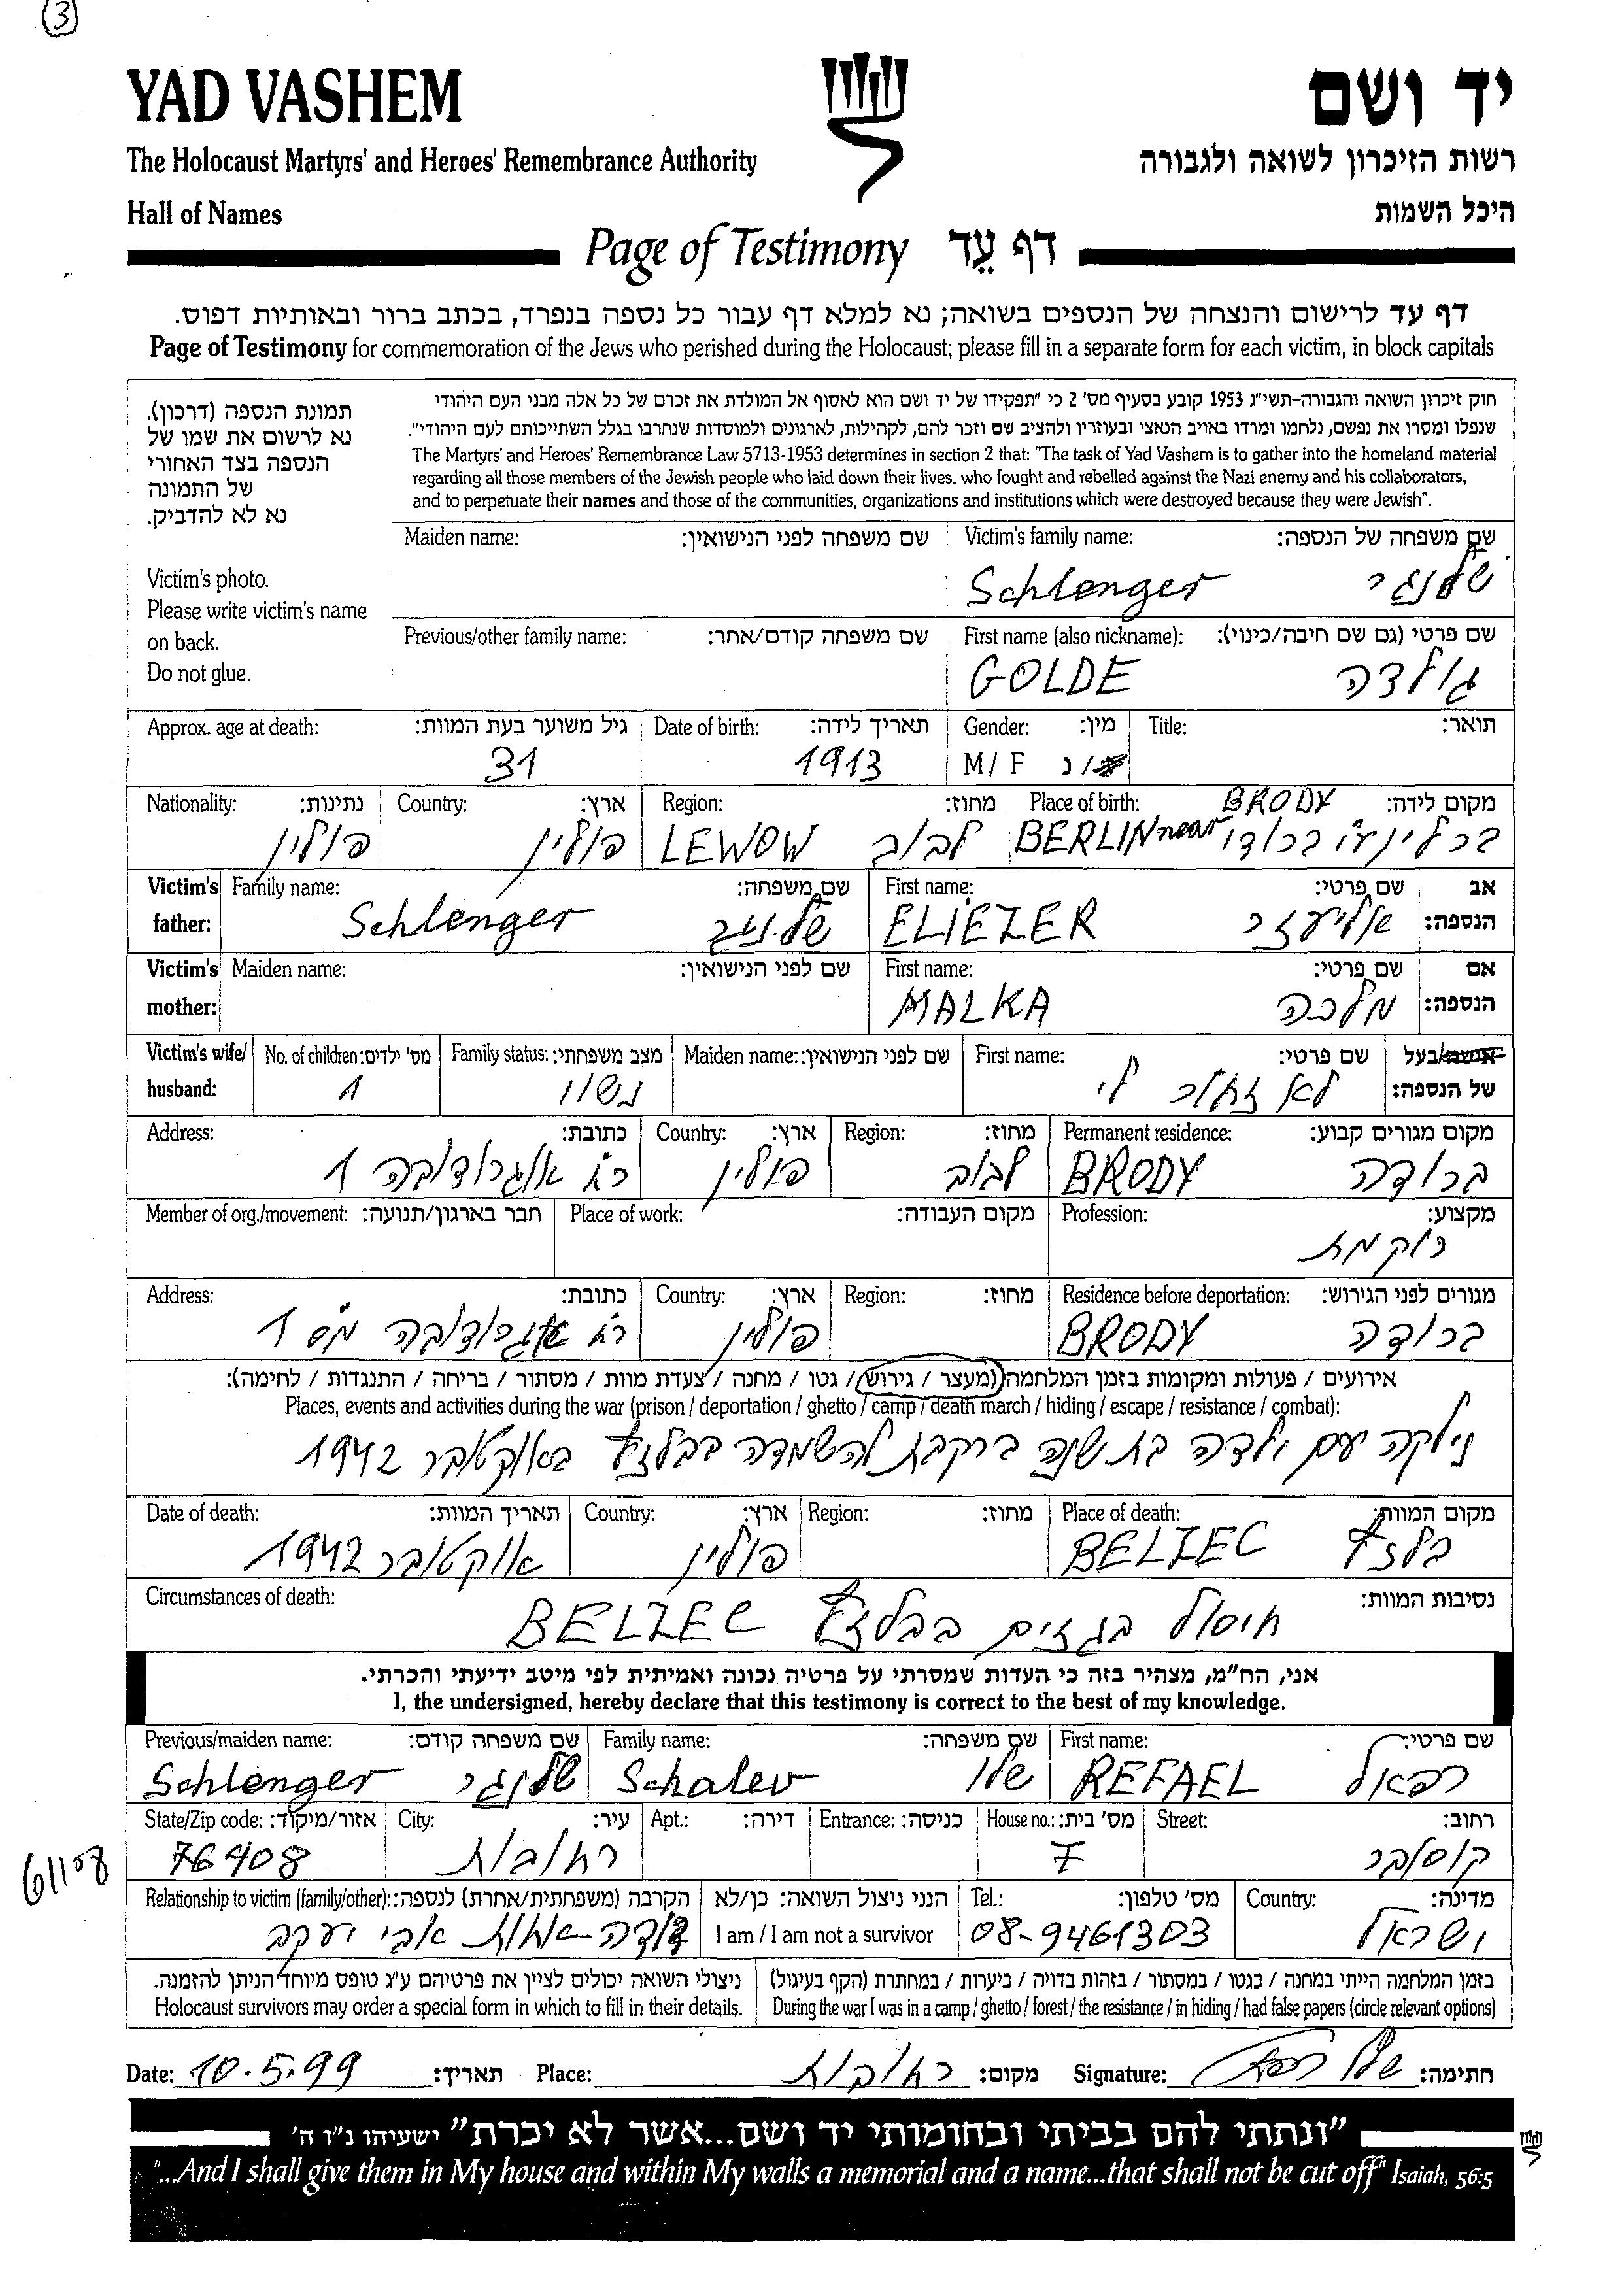 (3)
YAD VASHEM
יד ושם
The Holocaust Martyrs' and Heroes' Remembrance Authority
רשות הזיכרון לשואה ולגבורה
Hall of Names
היכל השמות
Page of Testimony דף עֵד
דף עד לרישום והנצחה של הנספים בשואה; נא למלא דף עבור כל נספה בנפרד, בכתב ברור ובאותיות דפוס.
Page of Testimony for commemoration of the Jews who perished during the Holocaust; please fill in a separate form for each victim, in block capitals
תמונת הנספה (דרכון).
נא לרשום את שמו של
הנספה בצד האחורי
של התמונה
נא לא להדביק.
Victim's photo.
Please write victim's name
on back.
Do not glue.
חוק זיכרון השואה והגבורה-תשי"ג 1953 קובע בסעיף מס' 2 כי "תפקידו של יד ושם הוא לאסוף אל המולדת את זכרם של כל אלה מבני העם היהודי
שנפלו ומסרו את נפשם, נלחמו ומרדו באויב הנאצי ובעוזריו ולהציב שם וזכר להם, לקהילות, לארגונים ולמוסדות שנחרבו בגלל השתייכותם לעם היהודי".
The Martyrs' and Heroes' Remembrance Law 5713-1953 determines in section 2 that: "The task of Yad Vashem is to gather into the homeland material
regarding all those members of the Jewish people who laid down their lives, who fought and rebelled against the Nazi enemy and his collaborators,
and to perpetuate their names and those of the communities, organizations and institutions which were destroyed because they were Jewish".
Maiden name: שם משפחה לפני הנישואין: Victim's family name: שם משפחה של הנספה:
Schlenger שלנגר
Previous/other family name: שם משפחה קודם/אחר: First name (also nickname): שם פרטי (גם שם חיבה/כינוי):
GOLDE גולדה
Approx. age at death: גיל משוער בעת המוות: Date of birth: תאריך לידה: Gender: מין: Title: תואר:
31 1913 M/ F נ /
Nationality: נתינות: Country: ארץ: Region: מחוז: Place of birth: BRODY מקום לידה:
פולין פולין LEWOW לבוב BERLIN near ברלין ע"י ברודי
Victim's father: Family name: שם משפחה: First name: שם פרטי: אב הנספה:
Schlenger שלנגר ELIEZER אליעזר
Victim's mother: Maiden name: שם לפני הנישואין: First name: שם פרטי: אם הנספה:
MALKA מלכה
Victim's wife/ husband: No. of children: מס' ילדים: Family status: מצב משפחתי: Maiden name: שם לפני הנישואין: First name: שם פרטי: אישה/בעל של הנספה:
1 נשוי לא זכור לי
Address: כתובת: Country: ארץ: Region: מחוז: Permanent residence: מקום מגורים קבוע:
רח' אוגרודובה 1 פולין לבוב BRODY ברודה
Member of org./movement: חבר בארגון/תנועה: Place of work: מקום העבודה: Profession: מקצוע:
רוקחת
Address: כתובת: Country: ארץ: Region: מחוז: Residence before deportation: מגורים לפני הגירוש:
רח' אוגרודובה מס 1 פולין BRODY ברודה
אירועים / פעולות ומקומות בזמן המלחמה (מעצר / גירוש / גטו / מחנה / צעדת מוות / מסתור / בריחה / התנגדות / לחימה):
Places, events and activities during the war (prison / deportation / ghetto / camp / death march / hiding / escape / resistance / combat):
נילקה עם ילדה בת שנה ברקבת להשמדה בבלזץ באוקטובר 1942
Date of death: תאריך המוות: Country: ארץ: Region: מחוז: Place of death: מקום המוות:
אוקטובר 1942 פולין BELZEC בלזץ
Circumstances of death: נסיבות המוות:
חיסול בגזים בבלזץ BELZEC
אני, הח"מ, מצהיר בזה כי העדות שמסרתי על פרטיה נכונה ואמיתית לפי מיטב ידיעתי והכרתי.
I, the undersigned, hereby declare that this testimony is correct to the best of my knowledge.
Previous/maiden name: שם משפחה קודם: Family name: שם משפחה: First name: שם פרטי:
Schlenger שלנגר Schalev שלו REFAEL רפאל
State/Zip code: אזור/מיקוד: City: עיר: Apt.: דירה: Entrance: כניסה: House no.: מס' בית: Street: רחוב:
76408 רחובות 7 קוסובר
Relationship to victim (family/other): הקרבה (משפחתית/אחרת) לנספה: הנני ניצול השואה: כן/לא Tel.: מס' טלפון: Country: מדינה:
דודה אחות אבי יעקב I am / I am not a survivor 08-9461303 ישראל
ניצולי השואה יכולים לציין את פרטיהם ע"ג טופס מיוחד הניתן להזמנה.
Holocaust survivors may order a special form in which to fill in their details.
בזמן המלחמה הייתי במחנה / בגטו / במסתור / בזהות בדויה / ביערות / במחתרת (הקף בעיגול)
During the war I was in a camp / ghetto / forest / the resistance / in hiding / had false papers (circle relevant options)
Date: 10.5.99 תאריך: Place: רחובות מקום: Signature: שלו רפאל חתימה:
"ונתתי להם בביתי ובחומותי יד ושם...אשר לא יכרת" ישעיהו נ"ו ה'
"...And I shall give them in My house and within My walls a memorial and a name...that shall not be cut off" Isaiah, 56:5